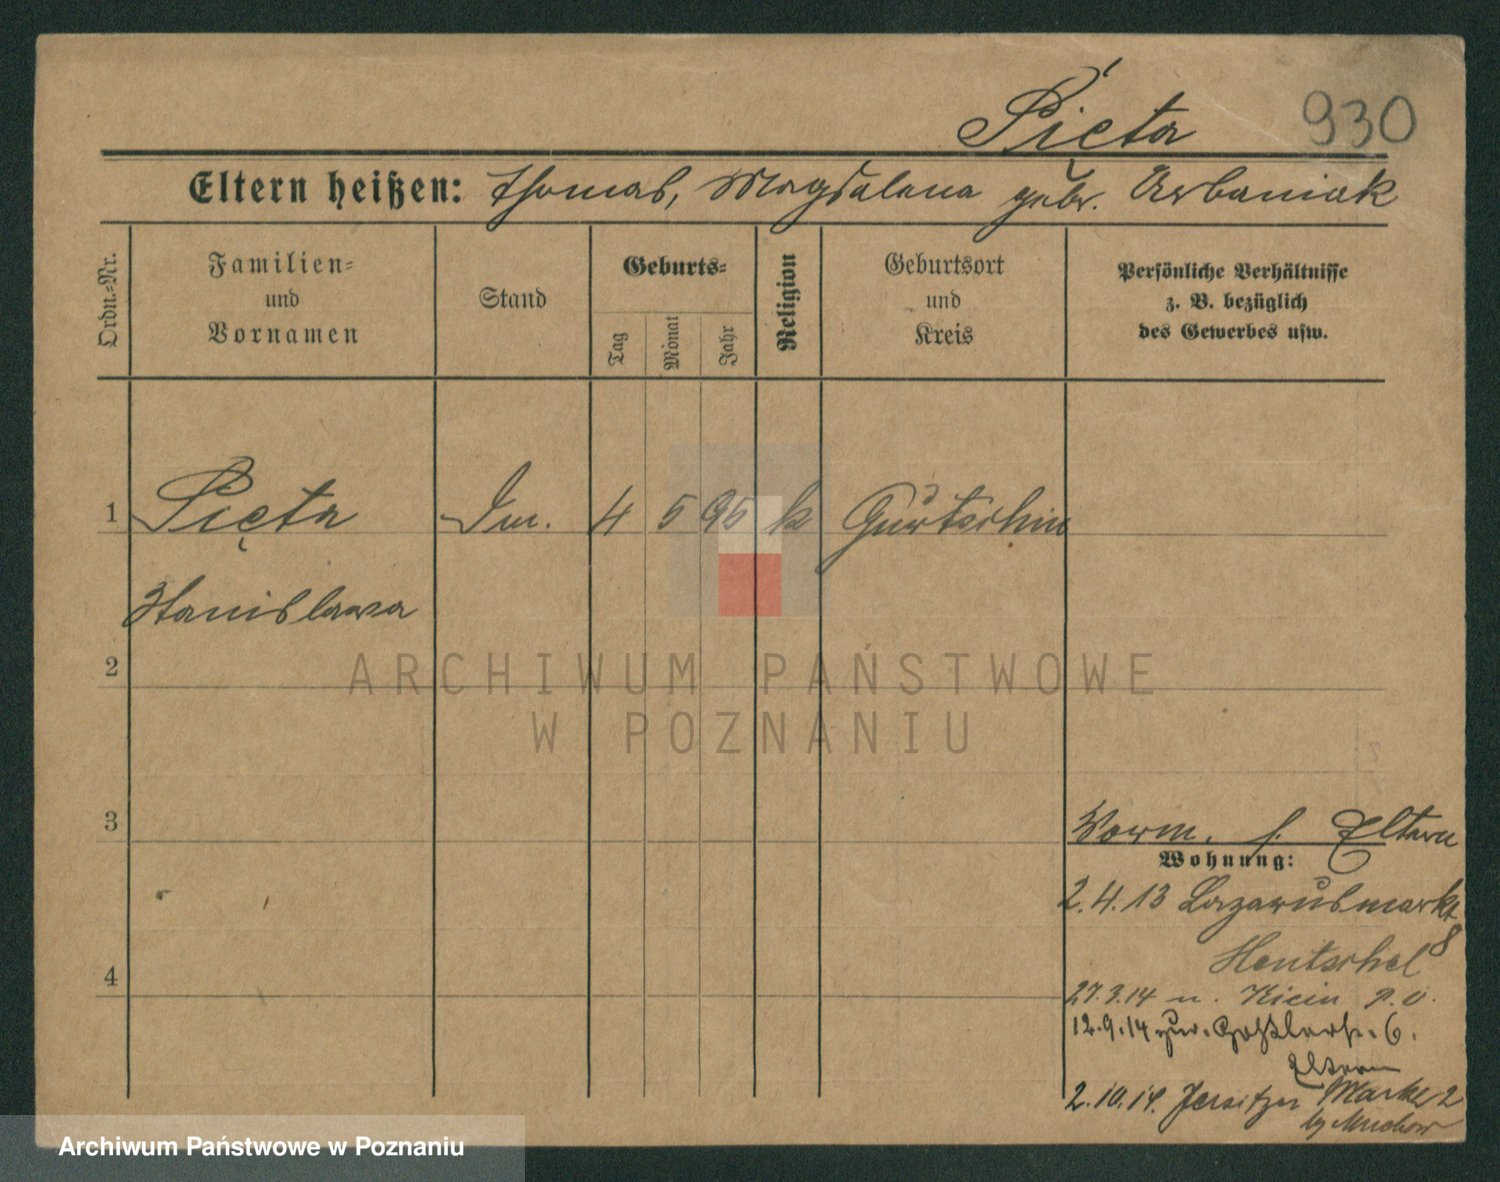 Pięta 930
Eltern heißen: Thomas, Magdalena gebr. Urbaniak
Ordn.-Nr.
Familien-
und
Vornamen
Stand
Geburts-
Tag
Monat
Jahr
Religion
Geburtsort
und
Kreis
Persönliche Verhältnisse
z. B. bezüglich
des Gewerbes usw.
1 Pięta 4 5 95 k Gurtschin
Stanislawa
2
3
4
Vorm. s. Eltern
Wohnung:
2.4.13 Lazarusmarkt
8
Hentschel
27.3.14 n. Kicin P.O.
12.9.14 zur. Goßlerstr. 6.
Eltern
2.10.14. Jersitzer Markt 2
ARCHIWUM PAŃSTWOWE
W POZNANIU
Archiwum Państwowe w Poznaniu